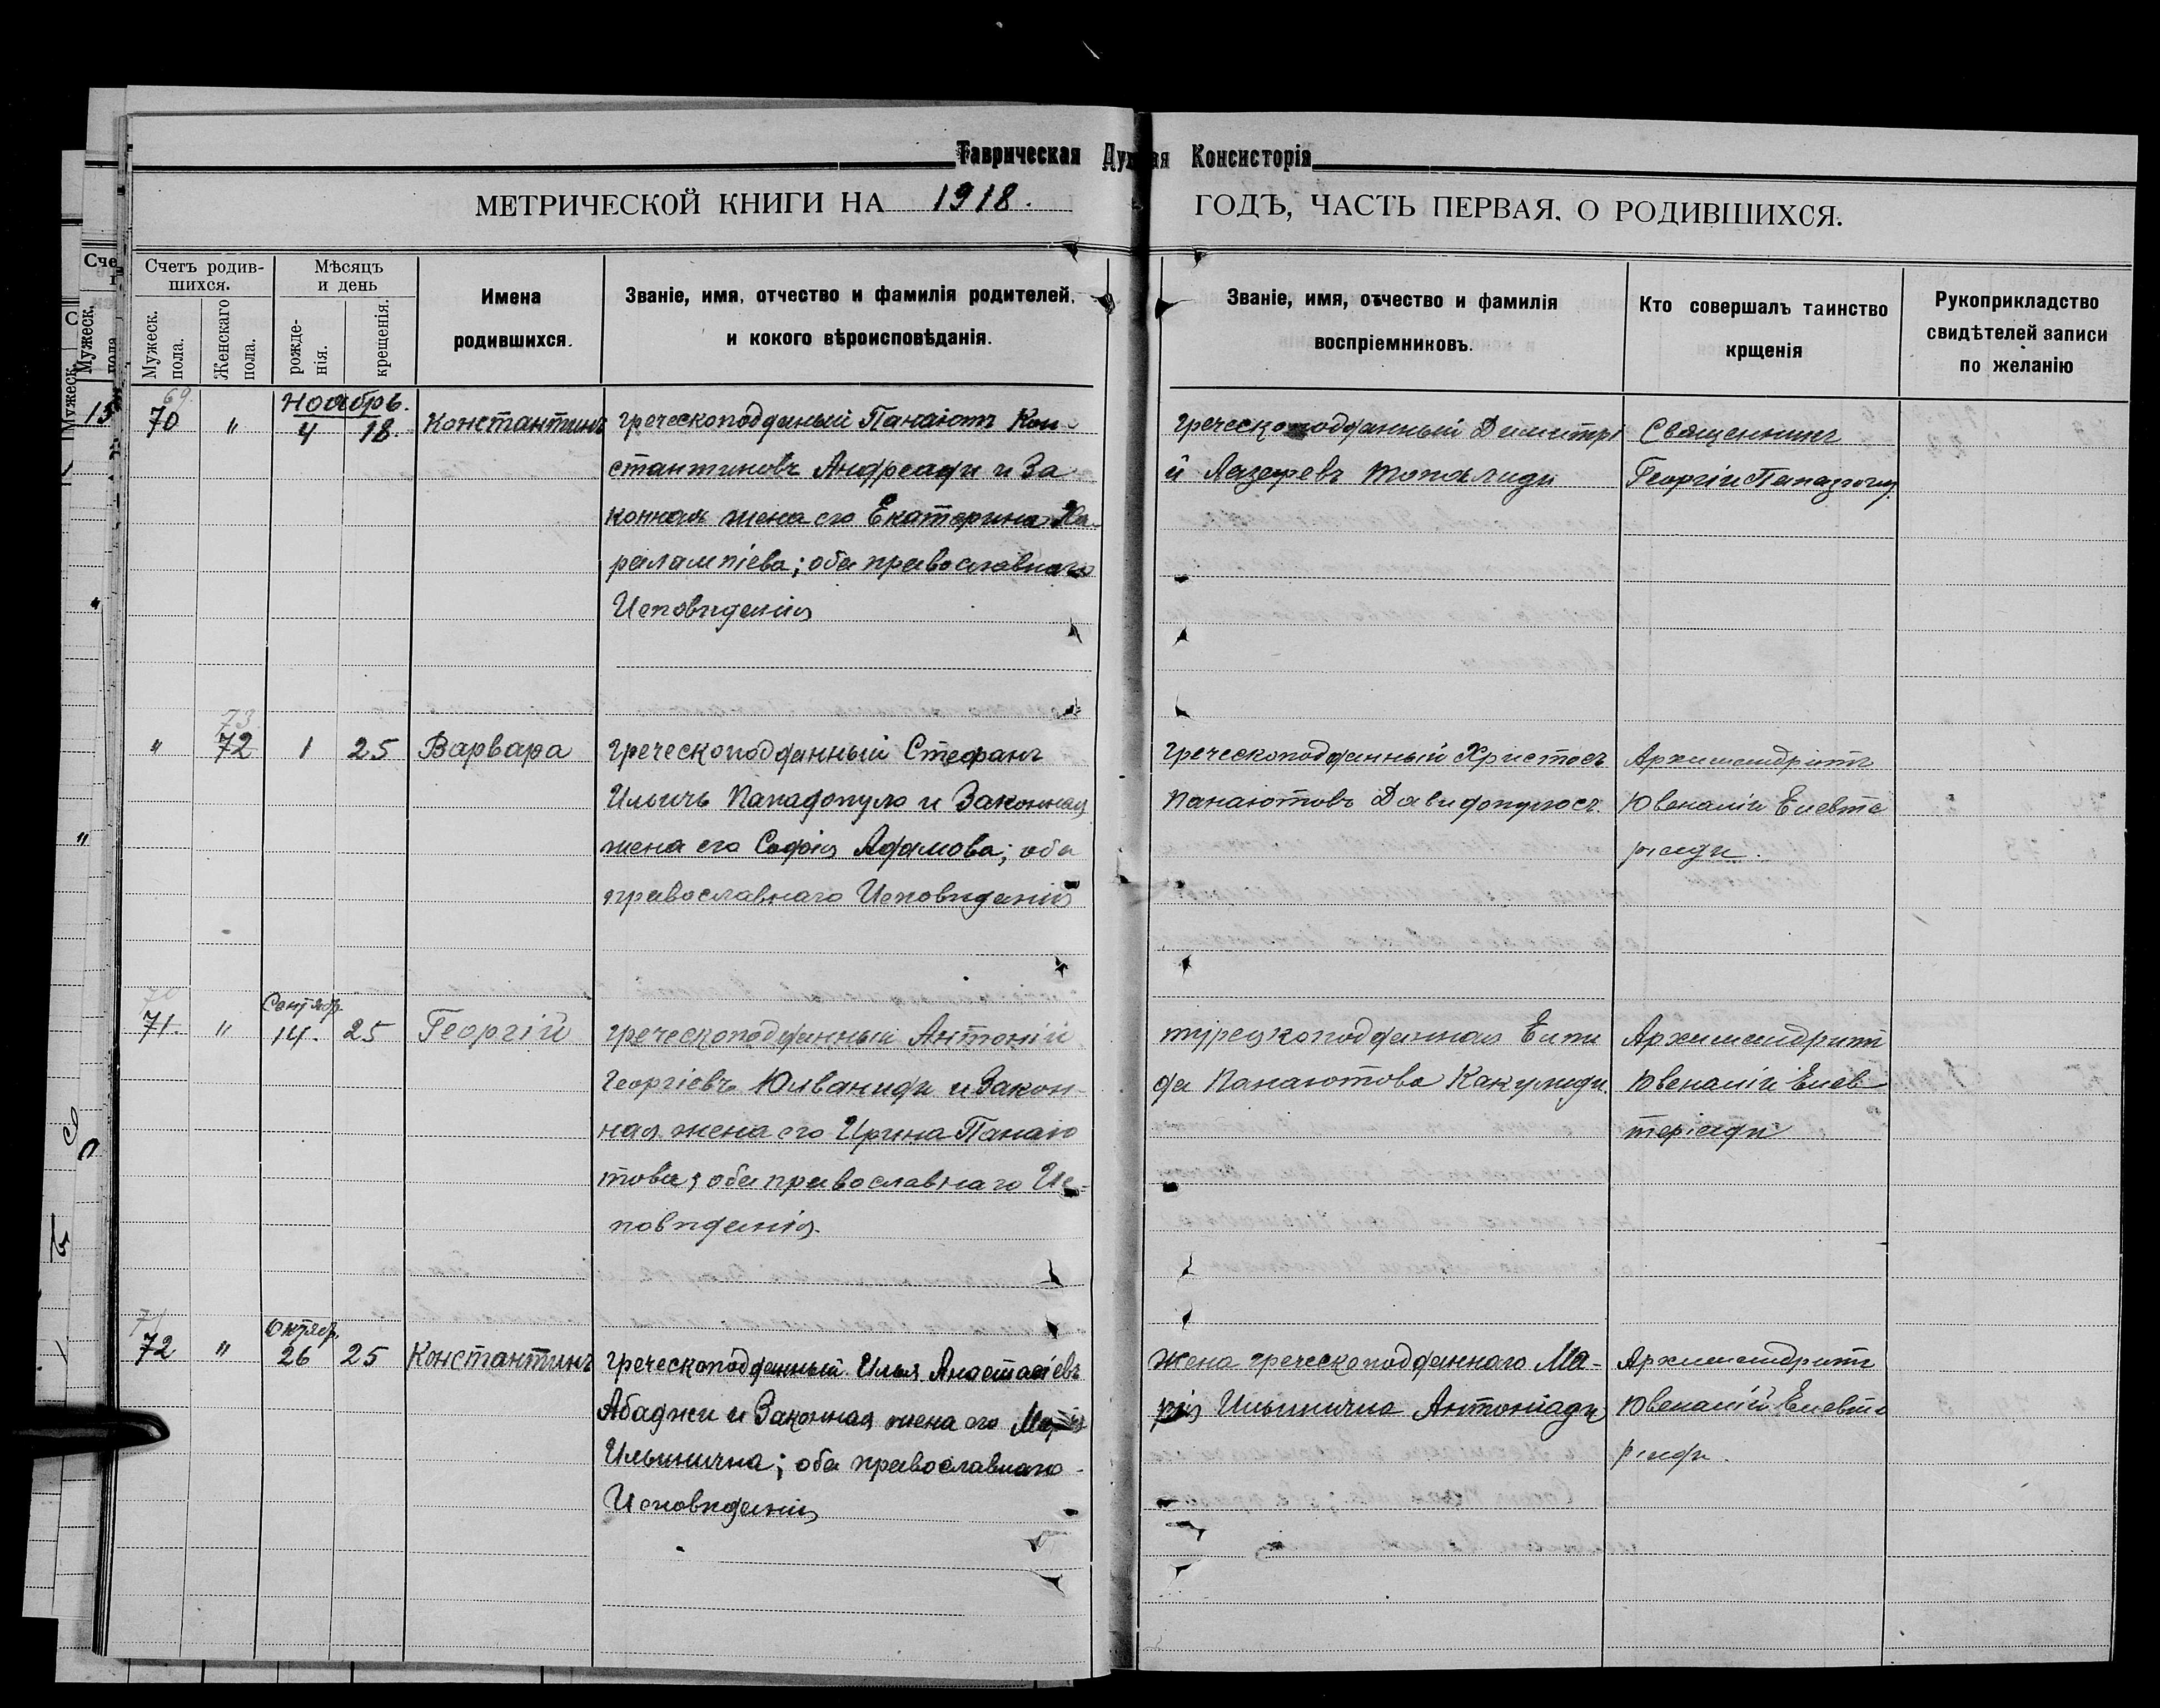 Таврическая Дух ая Консисторія
МЕТРИЧЕСКОЙ КНИГИ НА 1918. ГОДЪ, ЧАСТЬ ПЕРВАЯ, О РОДИВШИХСЯ.
Счетъ родив-
шихся.
Мужеск. пола.
Женскаго пола.
Мѣсяцъ
и день
рожде-
нія.
крещенія.
Имена
родившихся.
Званіе, имя, отчество и фамилія родителей,
и кокого вѣроисповѣданія.
Званіе, имя, отчество и фамилія
воспріемниковъ.
Кто совершалъ таинство
крщенія
Рукоприкладство
свидѣтелей записи
по желанію
69.
Ноябрь.
70 " 4 18. Константинъ
греческоподданый Панаіотъ Кон-
стантиновъ Андреади и За
конная жена его Екатерина Ха-
ралампіева; оба православнаго
Исповиданія
греческоподданный Димитрі
й Лазаревъ Топалиди
Священникъ
Георгіи
73
" 72 1 25 Варвара
греческоподданный Стефанъ
Ильичъ Пападопуло и Законная
жена его Софія Адамова; оба
православнаго Исповиданія
греческоподданный Христосъ
Панаютовъ Давидопулосъ.
Архимандритъ
Ювеналіи Елевте
ріади.
70
Сентябр.
71. " 14. 25 Георгій
греческоподданный Антоній
Георгіевъ Юлваниди и Закон-
ная жена его Ирина Панаю
това; оба православнаго Ис-
повиданія.
турецкоподданная Елпи
да Панаютова Какулиди.
Архимандритъ
Ювеналіи Елев
теріади
71
Октябр.
72 " 26 25 Константинъ
греческоподданный Илья Анастасіевъ
Абаджи и Законная жена его Марія
Ильинична; оба православнаго
Исповиданія
Жена греческоподданнаго Ма-
рія Ильинична Антоніади
Архимандритъ
Ювеналій Елевте
ріади.